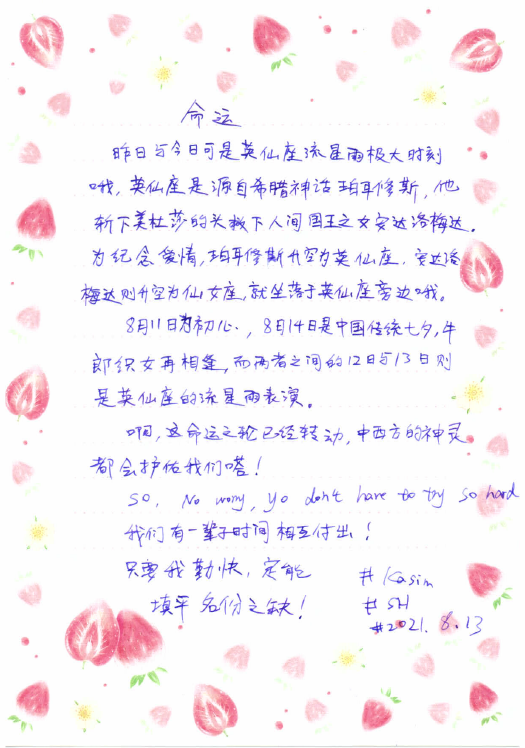 命运
昨日与今日可是英仙座流星雨极大时刻
哦，英仙座是源自希腊神话珀耳修斯，他
斩下美杜莎的头救下人间国王之女安达洛梅达。
为纪念爱情，珀耳修斯升空为英仙座，安达洛
梅达则升空为仙女座，就坐落于英仙座旁边哦。
8月11日为初心，8月14日是中国传统七夕，牛
郎织女再相逢，而两者之间的12日与13日则
是英仙座的流星雨表演。
啊，这命运之轮已经转动，中西方的神灵
都会护佑我们嗒！
So, No worry, yo don't have to try so hard
我们有一辈子时间相互付出！
只要我勤快，定能 #Kasim
填平名份之缺！ #SH
#2021.8.13